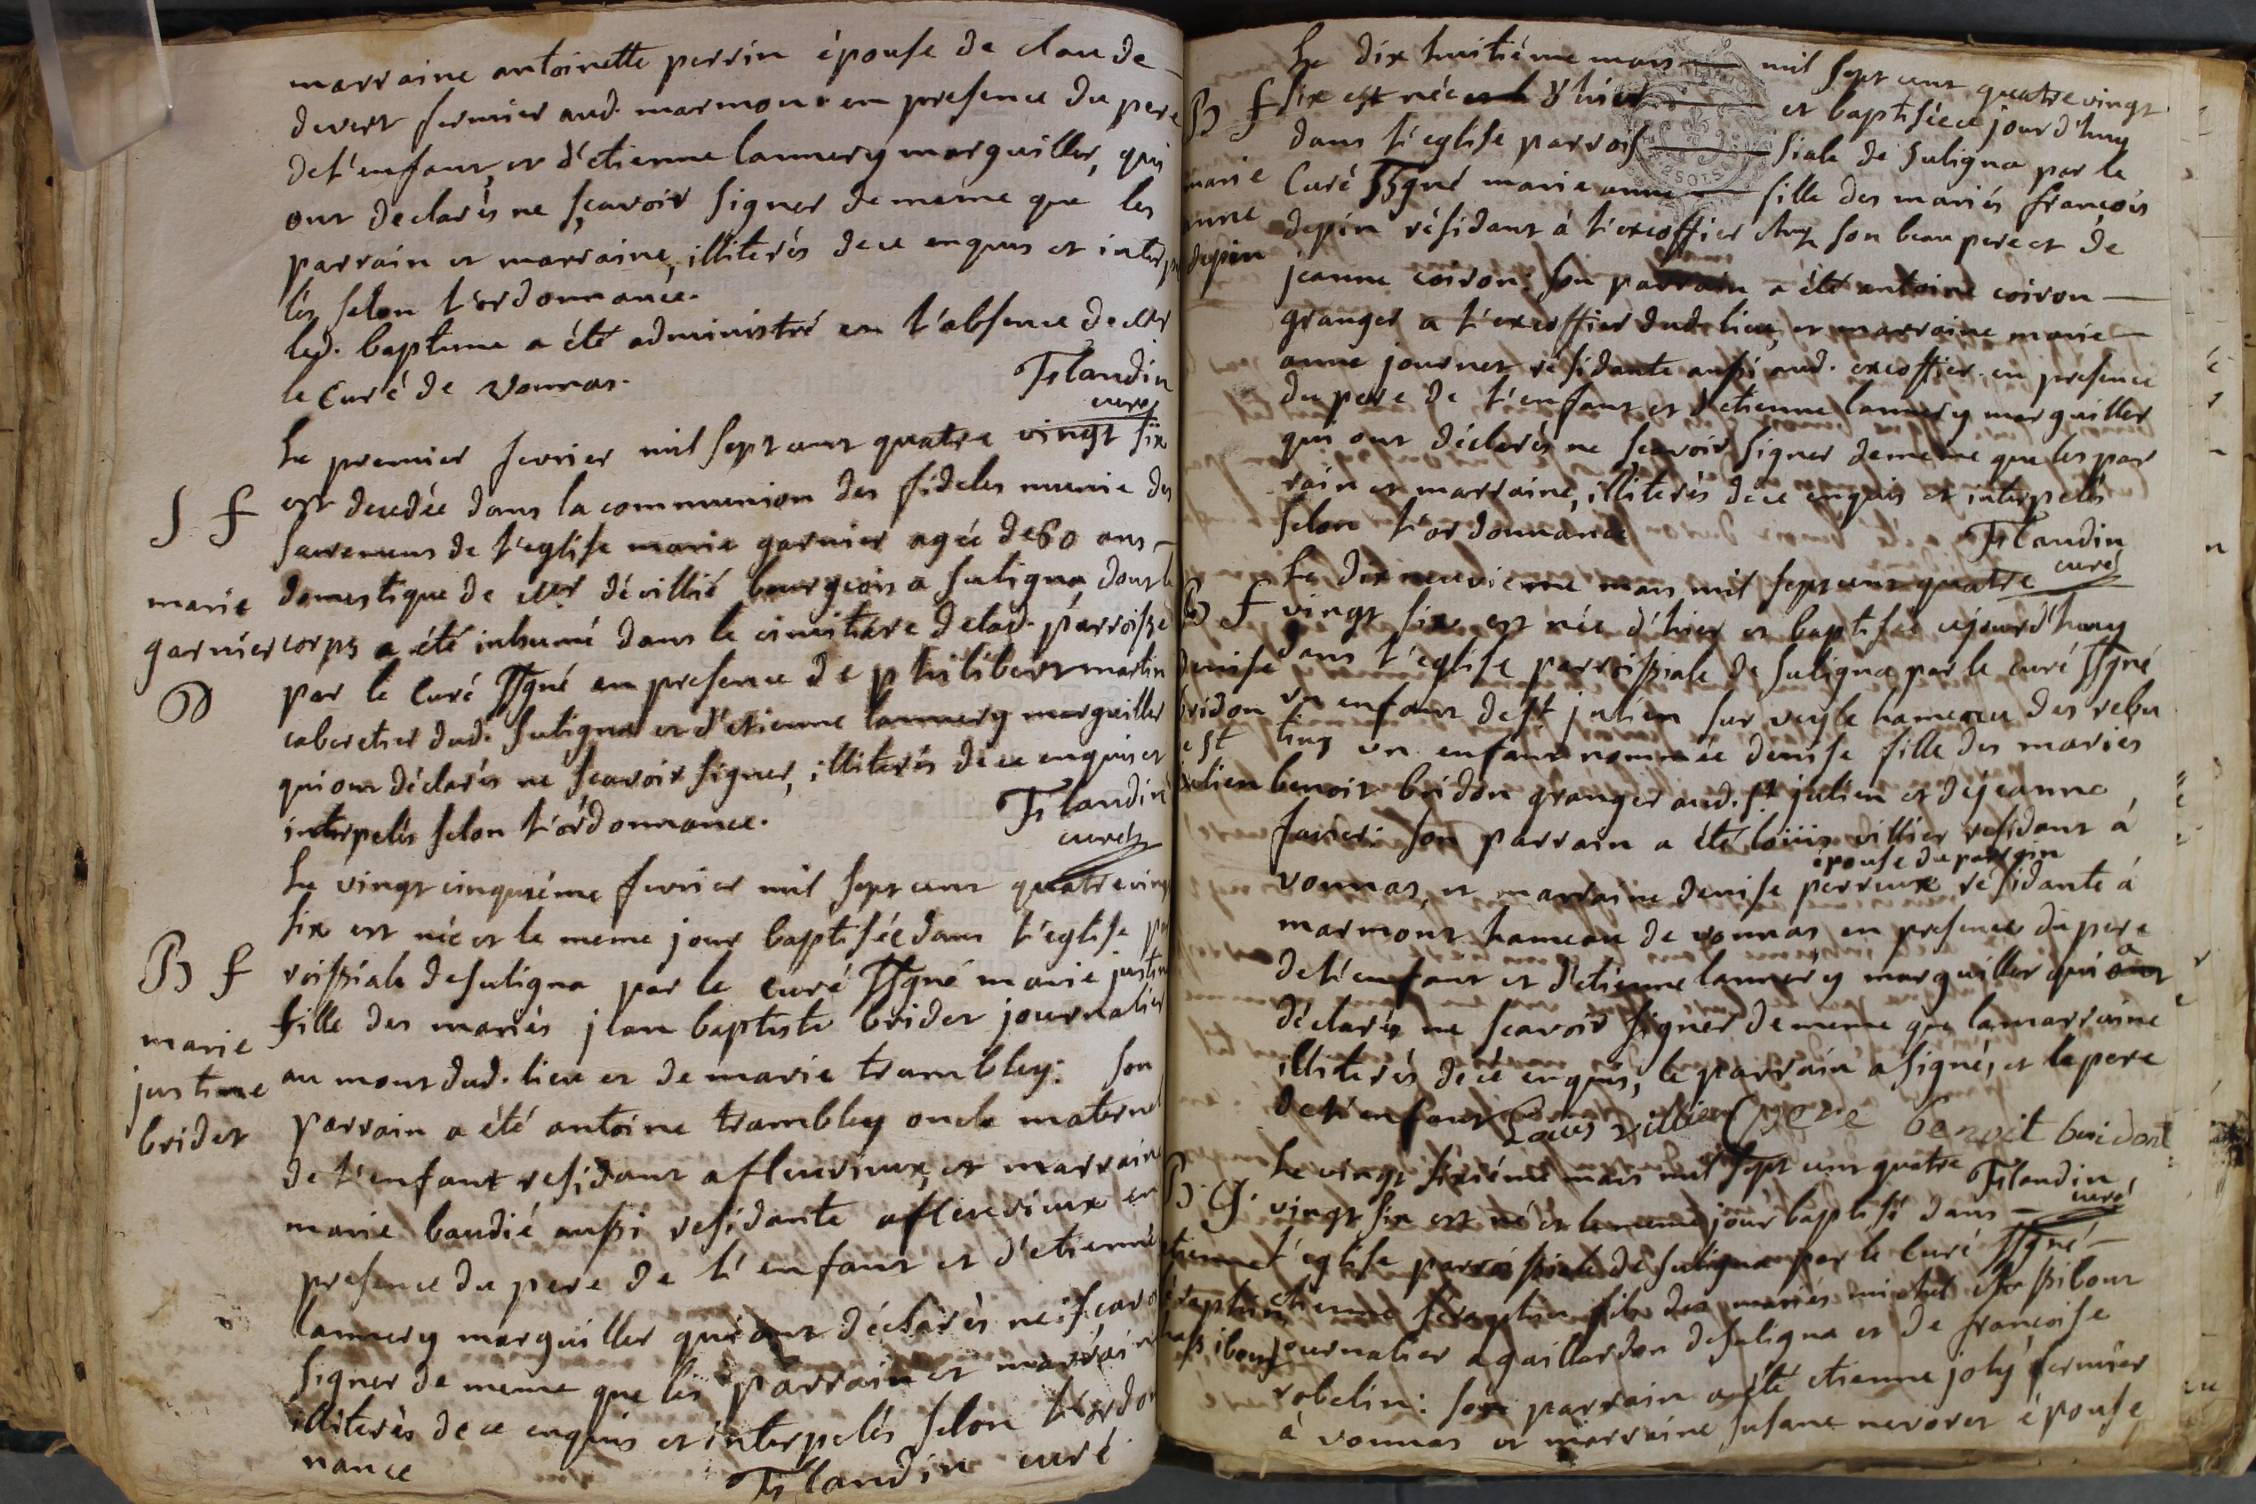 marraine antoinette perrin épouse de claude
devert fermier aud. marmont en presence du pere
de l'enfant, et d'etienne lannery marguiller, qui
ont declarés ne sçavoir signer de meme que les
parrain et marraine, illiterés de ce enquis et interpe
lés selon l'ordonnance.
led. baptume a été administré en l'absence de mr
le Curé de vonnas. Flandin
curé
Le premier fevrier mil sept cent quatre vingt six
S f est decedée dans la communion des fideles munie des
sacremens de l'eglise marie garnier agée de 60 ans
marie domestique de mr dévillié bourgeois a suligna, dont le
garnier corps a été inhumé dans le cimitiére de lad. parroisse
par le Curé ssgné en presence de philibert martin
cabaretier dud. suligna et d'etienne lannery marguiller
qui ont déclarés ne sçavoir signer, illiterés de ce enquis et
interpelés selon l'ordonnance. Flandin
curé
Le vingt cinquiéme fevrier mil sept cent quatre vingt
six est née et le meme jour baptisée dans l'eglise par
B f roissiale de suligna par le curé ssgné marie justine
fille des mariés jean baptiste bridet journalier
marie
justine au mont dud. lieu et de marie trambley: son
bridet parrain a été antoine trambley oncle maternel
de l'enfant residant a fleurieux, et marraine
marie baudié aussi residante a fleurieux en
presence du pere de l'enfant et d'etienne
lannery marguiller qui ont déclarés ne sçavoir
signer de meme que les parrain et marraine
illiterés de ce enquis et interpelés selon l'ordon
nance Flandin curé
Le dix huitiéme mars mil sept cent quatre vingt
B f six est née d'hier et baptisée ce jourd'huy
dans l'eglise parrois siale de suligna par le
marie Curé ssgné marie anne fille des mariés francois
anne
depin depin résidant à l'excoffier chez son beau pere et de
jeanne coiron: son parrain a été antoine coiron
granger a l'excoffier dud. lieu, et marraine marie
anne journet résidante aussi aud. excoffier en presence
du pere de l'enfant et d'etienne lannery marguiller
qui ont déclarés ne sçavoir signer de meme que les par
rain et marraine, illiterés de ce enquis et interpelés
selon l'ordonnance Flandin
curé
Le dix neuvieme mars mil sept cent quatre
B f vingt six est née d'hier et baptisée ce jourd'huy
denise dans l'eglise parroissiale de suligna par le curé ssgné
bridon un enfant de st julien sur veyle hameau des rebu
st tins un enfant nommée denise fille des mariés
julien benoit bridon granger aud. st julien et de jeanne
favier: son parrain a été louis villier residant à
épouse du parrain
vonnas, et marraine denise perreux résidante à
marmont hameau de vonnas en presence du pere
de l'enfant et d'etienne lannery marguiller qui a
déclarés ne sçavoir signer de meme que la marraine
illiterés de ce enquis, le parrain a signé, et le pere
de l'enfant Louis villier benoit bridon
Flandin
curé
Le vingt sixiéme mars mil sept cent quatre
B. G. vingt six est né et le meme jour baptisé dans
etienne l'eglise parroissiale de suligna par le Curé ssgné
séraphin etienne séraphin fils des mariés michel chassibout
chassibout journalier a gaillardon de suligna et de francoise
robelin: son parrain a été etienne joly fermier
à vonnas et marraine susane nevoret épouse